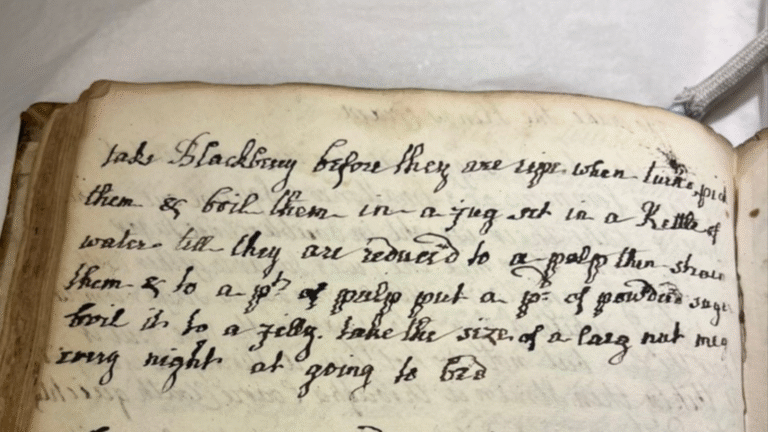 take Blackberry before they are ripe when turn'd pick
them & boil them in a jug set in a Kettle of
water till they are reduced to a pulp then strain
them & to a pt of pulp put a pd of powdered suger
boil it to a jelly. take the size of a larg nut meg
every night at going to bed